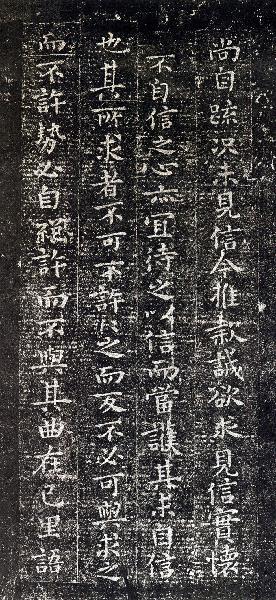 尚自疏況未見信今推款誠欲求見信實懷
不自信之心亦宜待之以信而當護其未自信
也其所求者不可不許〻之而反不必可與求之
而不許勢必自絕許而不與其曲在己里語